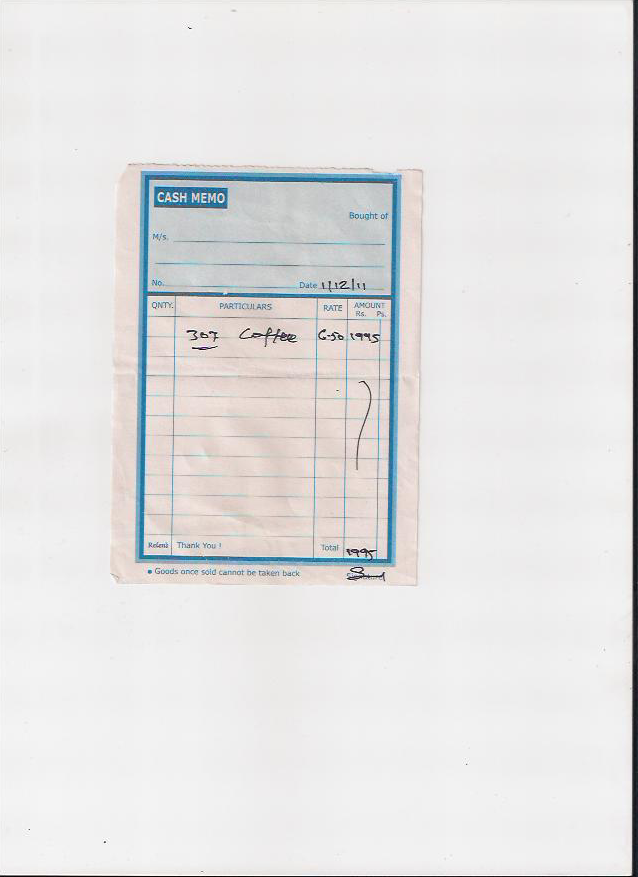 CASH MEMO
Bought of
M/s.
No. Date 1/12/11
QNTY. PARTICULARS RATE AMOUNT
Rs. Ps.
307 Coffee 6-50 1995
Relen's Thank You ! Total 1995
• Goods once sold cannot be taken back